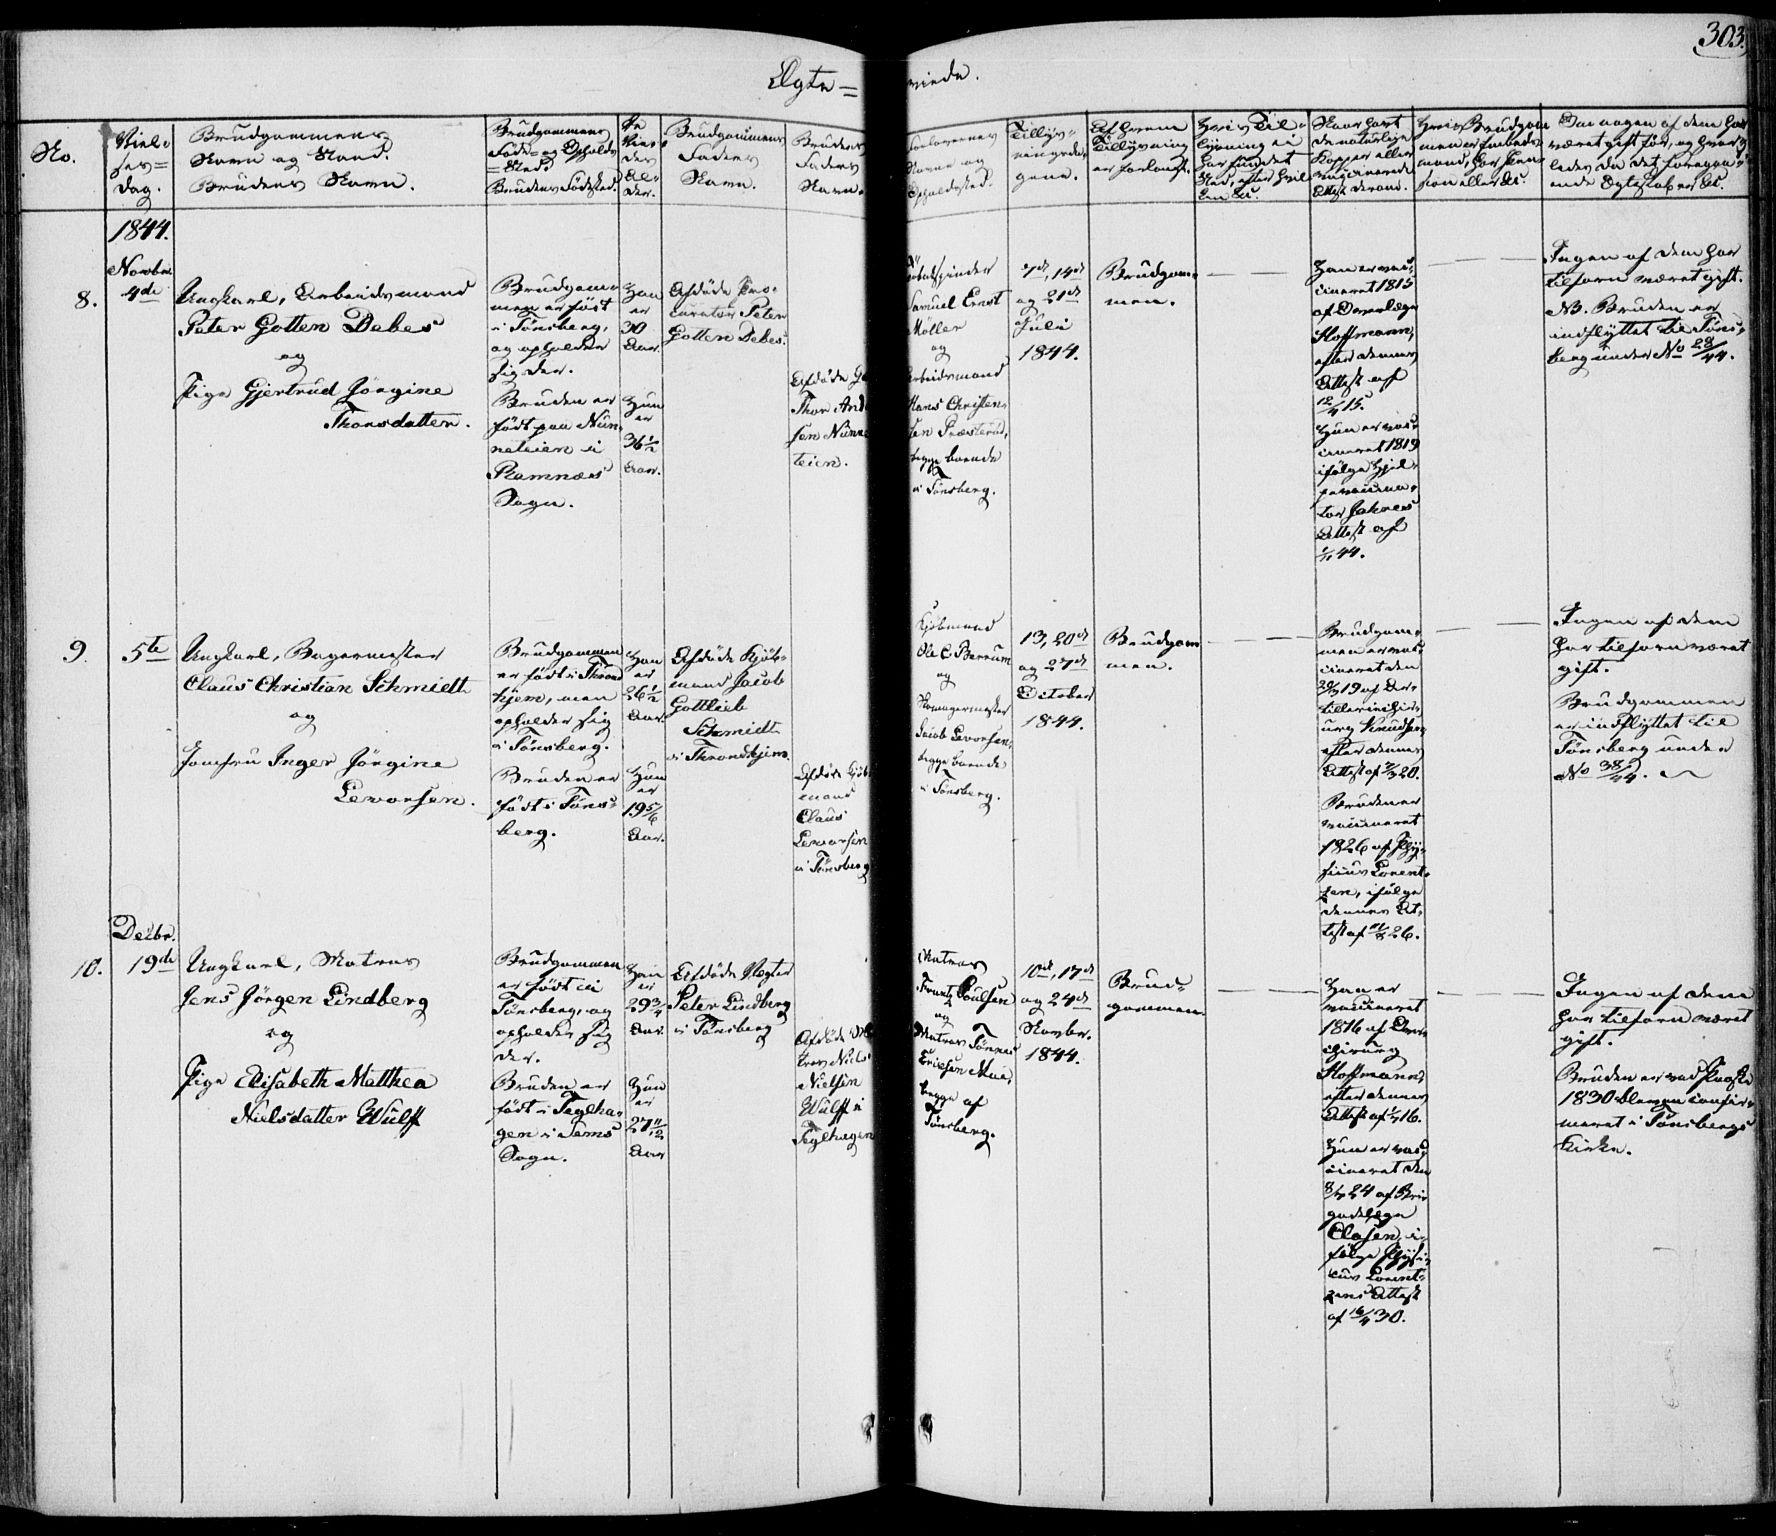 303.
Ægte= viede.
No.
Viel-
ses=
Dag.
Brudgommens
Navn og Stand.
Brudens Navn.
Brudgommens
Føde- og Opholds
=Sted.
Brudens Fødested.
De
Vies
des
Al-
der.
Brudgommens
Faders
Navn.
Brudens
Faders
Navn.
Forlovernes
Navne og
Opholdssted.
Tillys-
ningsda-
gene.
Af hvem
Tillysning
er forlangt.
Hvis Til-
lysning ei
har fundet
Sted, efter hvil-
Naar havt
de naturlige
Kopper eller
vaccinerede
Attest derom.
Hvis Brudgom
men er Embeds
mand, har Pen-
sion eller &c.
Om nogen af dem har
været gift før, og hvor-
ledes da det foregaa-
ende Ægteskab er &c.
1844.
Novbr.
8.
4de
Ungkarl, Arbeidsmand
Peter Gotten Debes
og
Pige Gjertrud Jörgine
Thorsdatter.
Brudgom-
men er født
i Tønsberg,
og opholder
sig der.
Bruden er
født paa Nün-
neteien i
Ramnæs
Sogn.
Han
er
30
Aar.
Hun
er
36 1/2
Aar.
Afdøde Pro-
curator Peter
Gotten Debes.
Afdøde
Thor And
sen Nünne
teien.
Samuel Ernst
Möller
og
Arbeidsmand
Hans Christen-
sen Præsterud,
begge boende
i Tønsberg.
7de, 14de
og 21de
Juli
1844.
Brudgom-
men.
Han er vac-
cineret 1815
af Overlæge
Hoffmann,
efter dennes
Attest af
12/4 15.
Hun er vac-
cineret 1819
ifølge Hjel-
pevaccina-
tor
Attest af
44.
Ingen af dem har
tilforn været gift.
NB. Bruden er
indflyttet til Tøns-
berg under No 28/44.
9.
5te
Ungkarl, Bagermester
Claus Christian Schmidt
og
Jomfru Inger Jörgine
Levorsen.
Brudgommen
er født i Thrond
hjem, men
opholder sig
i Tønsberg.
Bruden er
født i Tøns-
berg.
Han
er
26 1/2
Aar.
Hun
er
19 5/6
Aar.
Afdøde Kjøb-
mand Jacob
Gottlieb
Schmidt
i Throndhjem.
Afdøde Kjøb
mand
Claus
Levorsen
i Tønsberg
Kjøbmand
Ole C. Berrum
og
Skomagermester
Jacob Levorsen,
begge boende
i Tønsberg.
13, 20de
og 27de
October
1844.
Brudgom
men.
Brudgom-
men er vac-
cineret den
19 af Ar-
tillerichir-
urg Knudsen
efter dennes
Attest af 20.
Bruden er
vaccineret
1826 af Phy-
sicus Lorent-
sen, ifølge
dennes At-
test af 26.
Ingen af dem
har tilforn været
gift.
Brudgommen
er indflyttet til
Tønsberg under
No 38/44.
Decbr.
10.
19de
Ungkarl, Matros
Jens Jörgen Lindberg
og
Pige Elisabeth Matthea
Nielsdatter Wülff
Brudgommen
er født i
Tønsberg, og
opholder sig
der.
Bruden er
født i Teglha-
gen i Sems
Sogn.
Han
er
29 3/4
Aar.
Hun
er
27 11/12
Aar
Afdøde Vægter
Peter Lindberg
i Tønsberg
Afdøde Ma
tros Niels
Nielsen
Wülff i
Teglhagen
Matros
Frantz Poulsen
og
Matros Tønnes
Ericsen Moe,
begge af
Tønsberg.
10de, 17de
og 24de
Novbr.
1844.
Brud-
gommen.
Han er
vaccineret
1816 af Over-
chirurg
Hoffmann,
efter dennes
Attest af 16.
Hun er vac-
cineret den
24 af Bri-
gadelæge
Clasen, i-
følge Physi-
cus Lorent-
zens Attest
af 16/4 30.
Ingen af dem
har tilforn været
gift.
Bruden er ved Paaske
1830 bleven confir-
meret i Tønsbergs
Kirke.